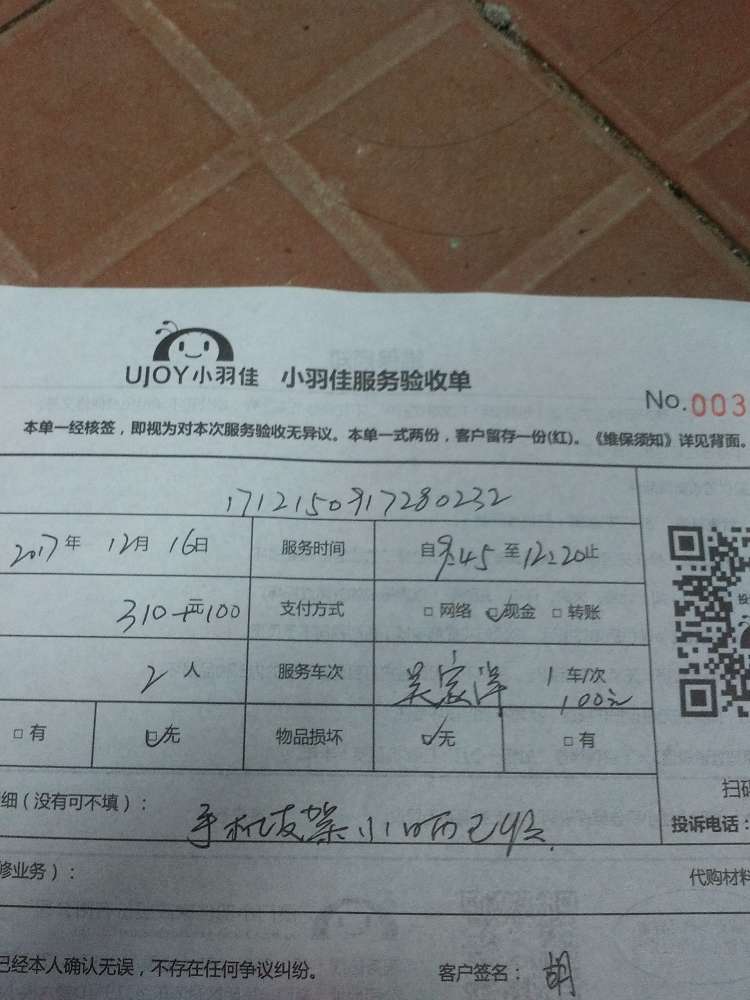 UJOY小羽佳 小羽佳服务验收单
No.003
本单一经核签，即视为对本次服务验收无异议。本单一式两份，客户留存一份(红)。《维保须知》详见背面。
1712150917280232
2017年 12月 16日 服务时间 自9:45 至12:20止
310元+100 支付方式 □网络 ☑现金 □转账
2人 服务车次 吴家洋 1车/次
100元
□有 ☑无 物品损坏 ☑无 □有
细（没有可不填）：
手机支架
扫码
投诉电话：
修业务）： 代购材料
已经本人确认无误，不存在任何争议纠纷。 客户签名：胡